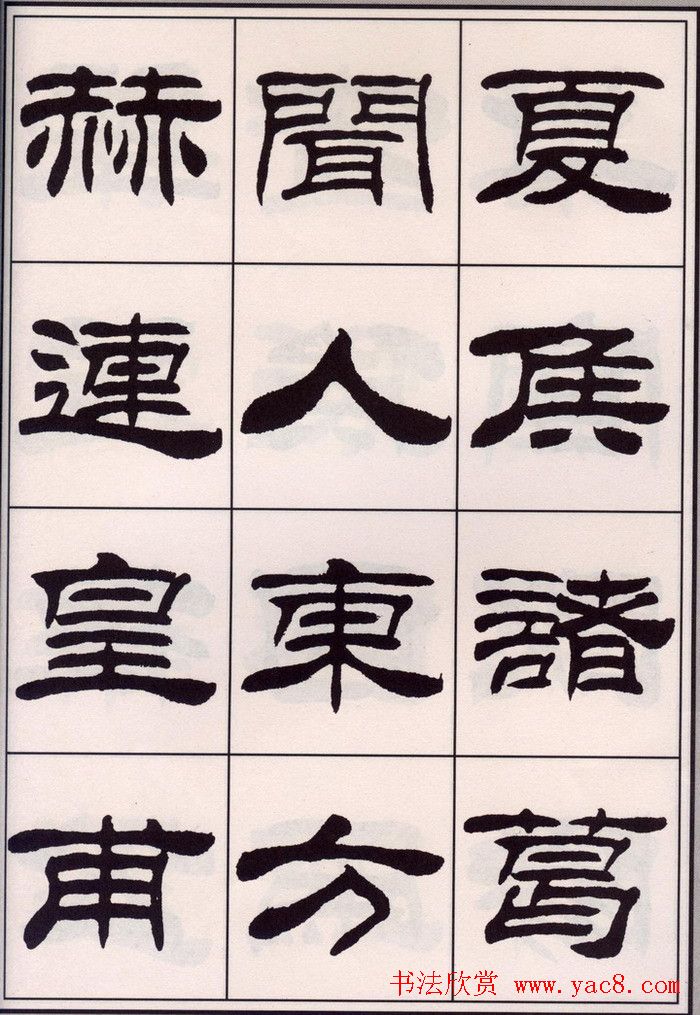 夏侯諸葛
聞人東方
赫連皇甫
书法欣赏 www.yac8.com